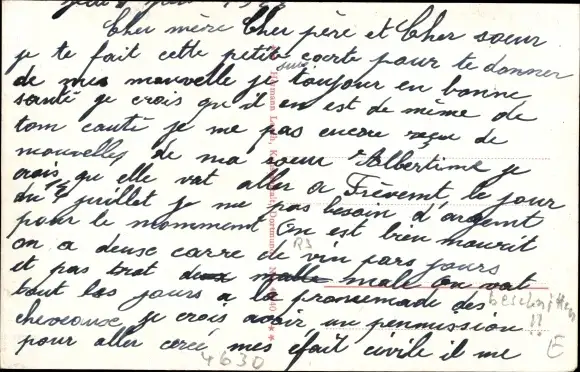 Cher mère Cher père et Cher soeur
je te fait cette petite carte pour te donner
de mes mouvelle je suis toujour en bonne
santé je crois qu il en est de même de
tom cauté je me pas encore reçu de
mouvelles de ma soeur Albertime je
crois qu elle vat aller a le jour
du juillet je me pas besoin d'argent
pour le momment On est bien mourit
on a deuse carre de vin pars jours
et pas trat mall On vat
tout les jours a la promemade des
cheveouse je crois avoir un penmission
pour aller cercé mes éfait civile il me
R3
beschnitten
!!
E
4630